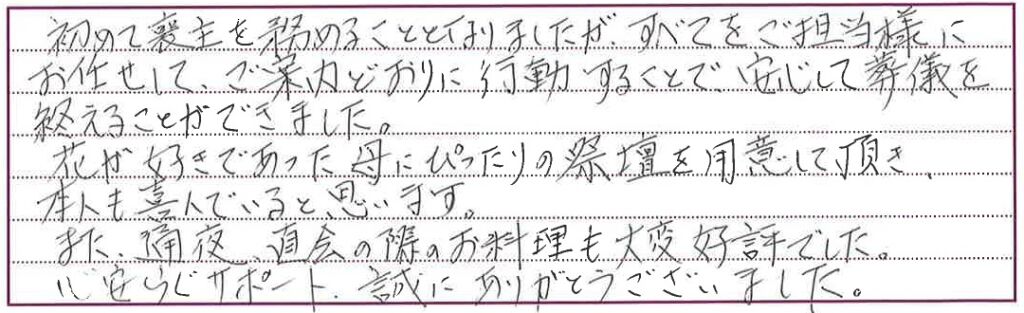 初めて喪主を務めることとなりましたが、すべてをご担当様に
お任せして、ご案内どおりに行動することで、安じして葬儀を
終えることができました。
花が好きであった母にぴったりの祭壇を用意して頂き、
本人も喜んでいると思います。
また、通夜、直会の際のお料理も大変好評でした。
心安らぐサポート、誠にありがとうございました。